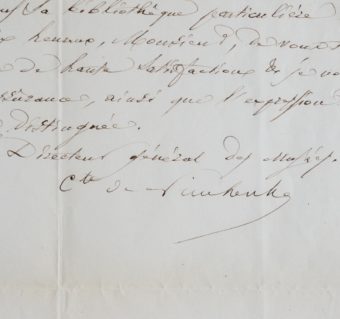 sa bibliothèque particulière
heureux, Monsieur, de vous
de haute satisfaction & je vous
ainsi que l'expression
distinguée.
Directeur général des Musées.
Cte de Nieuwerkerke